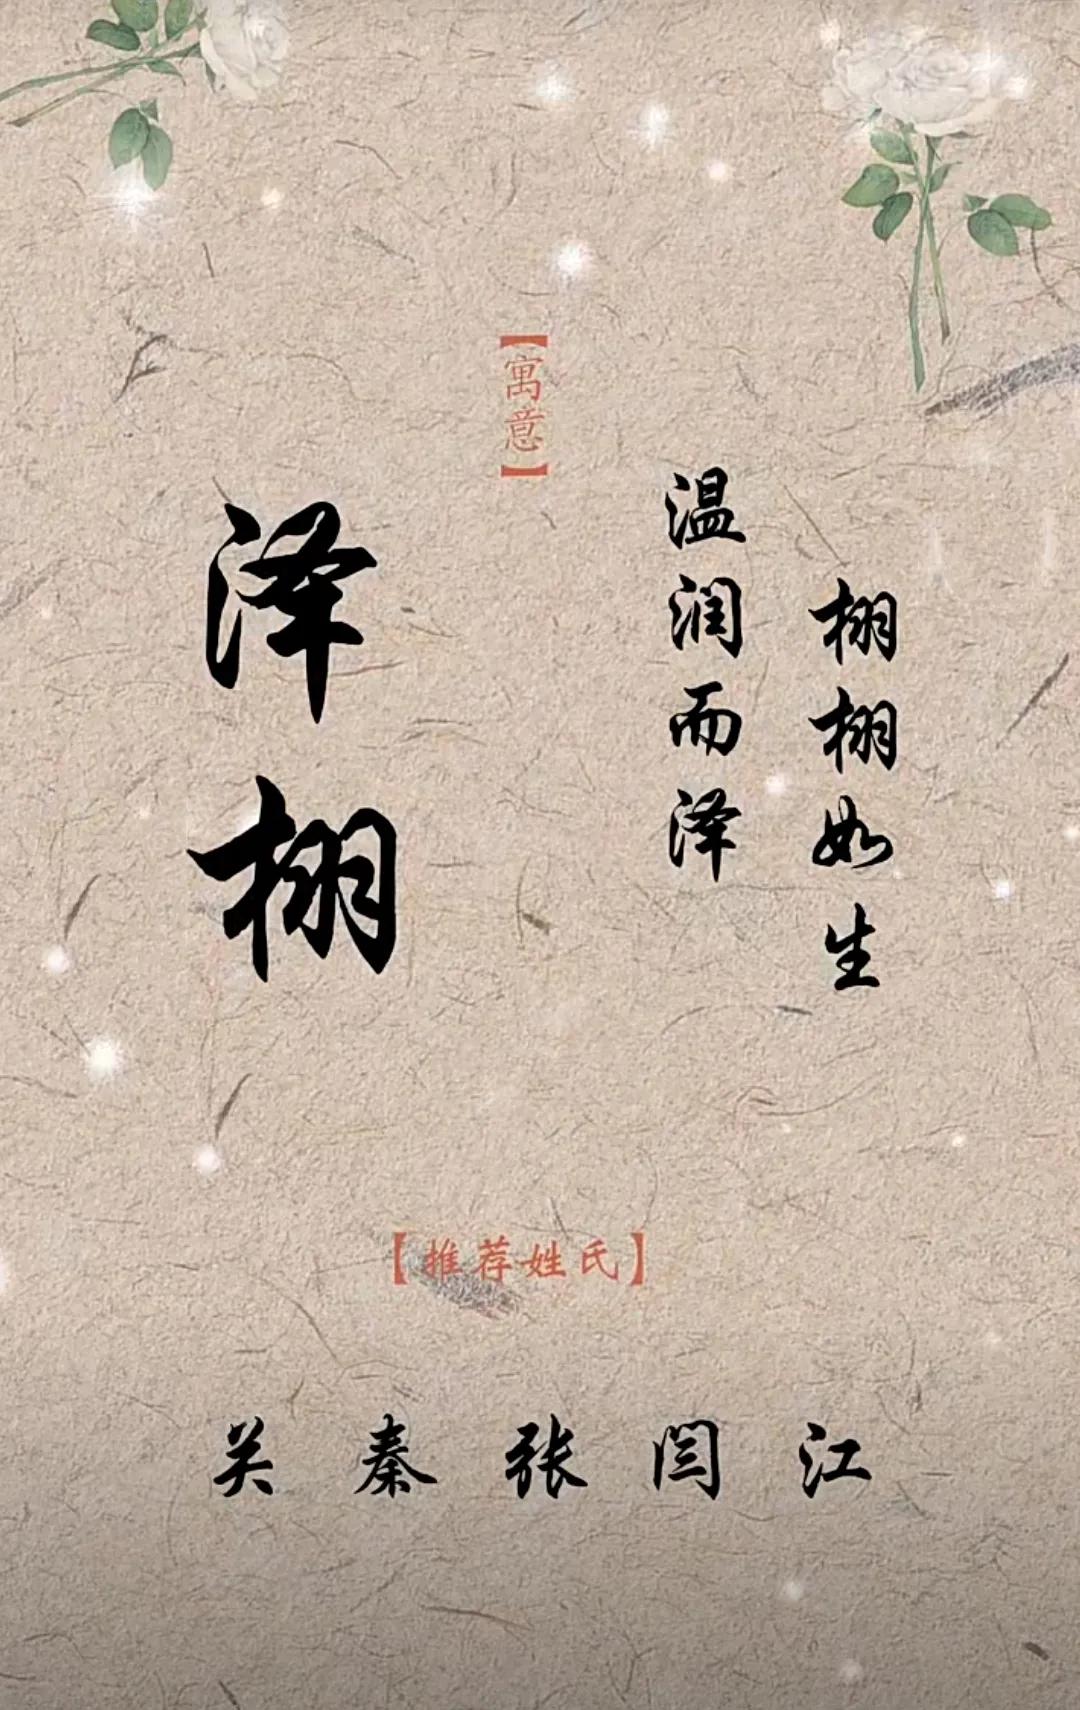 【寓意】
泽栩
栩栩如生
温润而泽
【推荐姓氏】
关 秦 张 闫 江